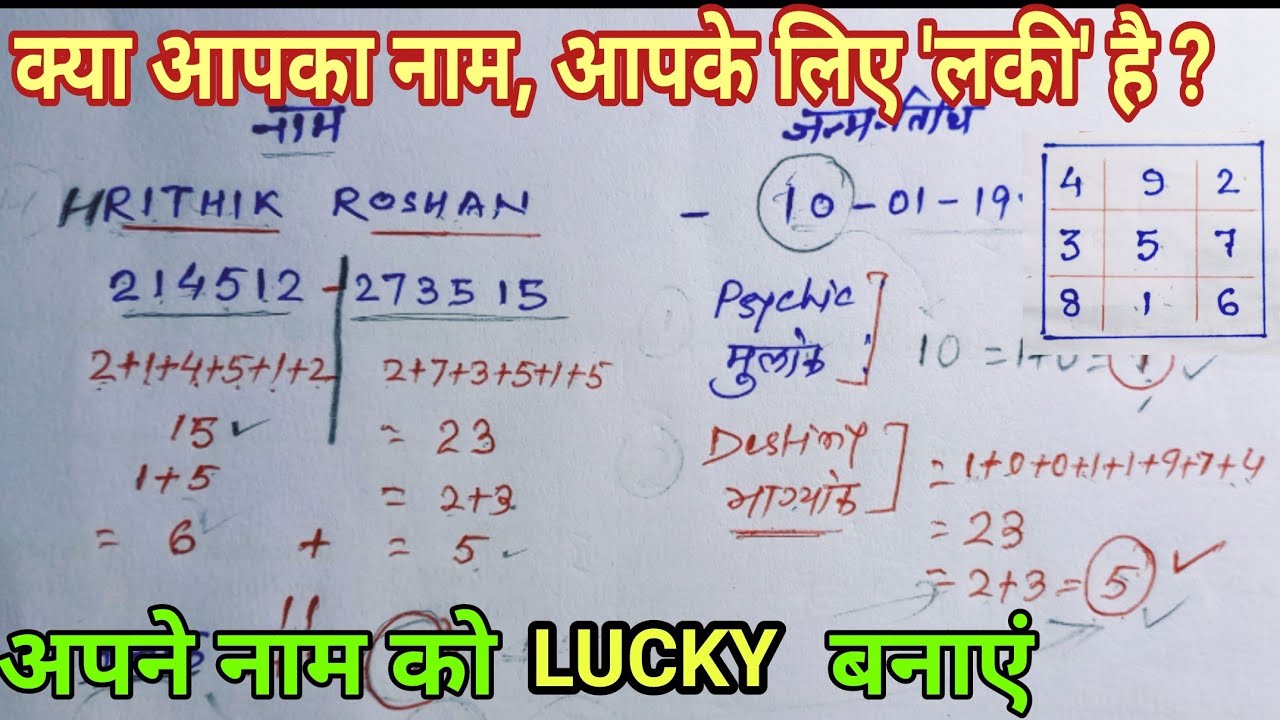 क्या आपका नाम, आपके लिए 'लकी' है ?
नाम
HRITHIK ROSHAN
214512 - 273515
2+1+4+5+1+2
2+7+3+5+1+5
15 ✓
= 23
1+5
= 2+3
= 6 + = 5 ✓
11
जन्म-तिथि
- 10-01-19
Psychic
मुलांक
10 = 1+0 = 1 ✓
Destiny
भाग्यांक
= 1+0+0+1+1+9+7+4
= 23
= 2+3 = 5 ✓
4 9 2
3 5 7
8 1 6
अपने नाम को LUCKY बनाएं